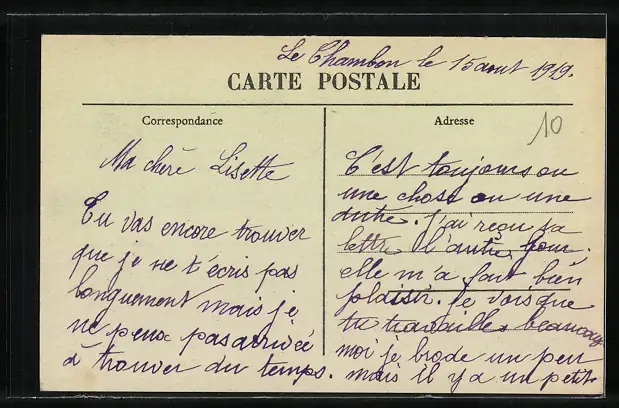 Le Chambon le 15 aout 1919.
CARTE POSTALE
Correspondance
Adresse
10
Ma chère Lisette
Tu vas encore trouver
que je ne t'écris pas
longuement mais je
ne peux pas arrivée
à trouver du temps.
C'est toujours ou
une chose ou une
autre. J'ai reçu ta
lettre l'autre jour.
elle m'a fait bien
plaisir. je vois que
tu travailles beaucoup
moi je brode un peu
mais il y a un petit